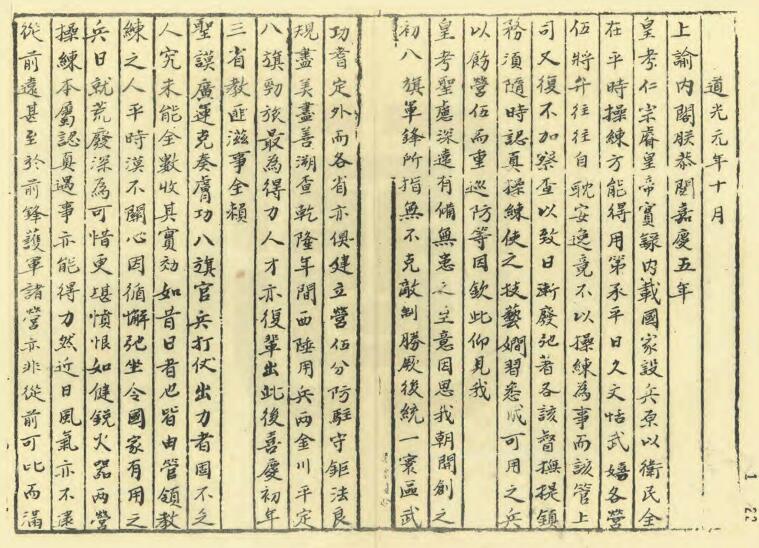 道光元年十月
上諭內閣朕恭閱嘉慶五年
皇考仁宗睿皇帝實錄內載國家設兵原以衛民全
在平時操練方能得用第承平日久文恬武嬉各營
伍將弁往往自耽安逸竟不以操練為事而該管上
司又復不加察查以致日漸廢弛著各該督撫提鎮
務須隨時認真操練使之技藝嫺習悉成可用之兵
以飭營伍而重巡防等因欽此仰見我
皇考聖慮深遠有備無患之至意因思我朝開創之
初八旗軍鋒所指無不克敵制勝厥後統一寰區武
功耆定外而各省亦俱建立營伍分防駐守鉅法良
規盡美盡善溯查乾隆年間西陲用兵兩金川平定
八旗勁旅最為得力人才亦復輩出此後嘉慶初年
三省教匪滋事全賴
聖謨廣運克奏膚功八旗官兵打仗出力者固不乏
人究未能全數收其實効如昔日者也皆由管領教
練之人平時漠不關心因循懈弛坐令國家有用之
兵日就荒廢深為可惜更堪憤恨如健銳火器兩營
操練本屬認真遇事亦能得力然近日風氣亦不逮
從前遠甚至於前鋒護軍諸營亦非從前可比而滿
1 22